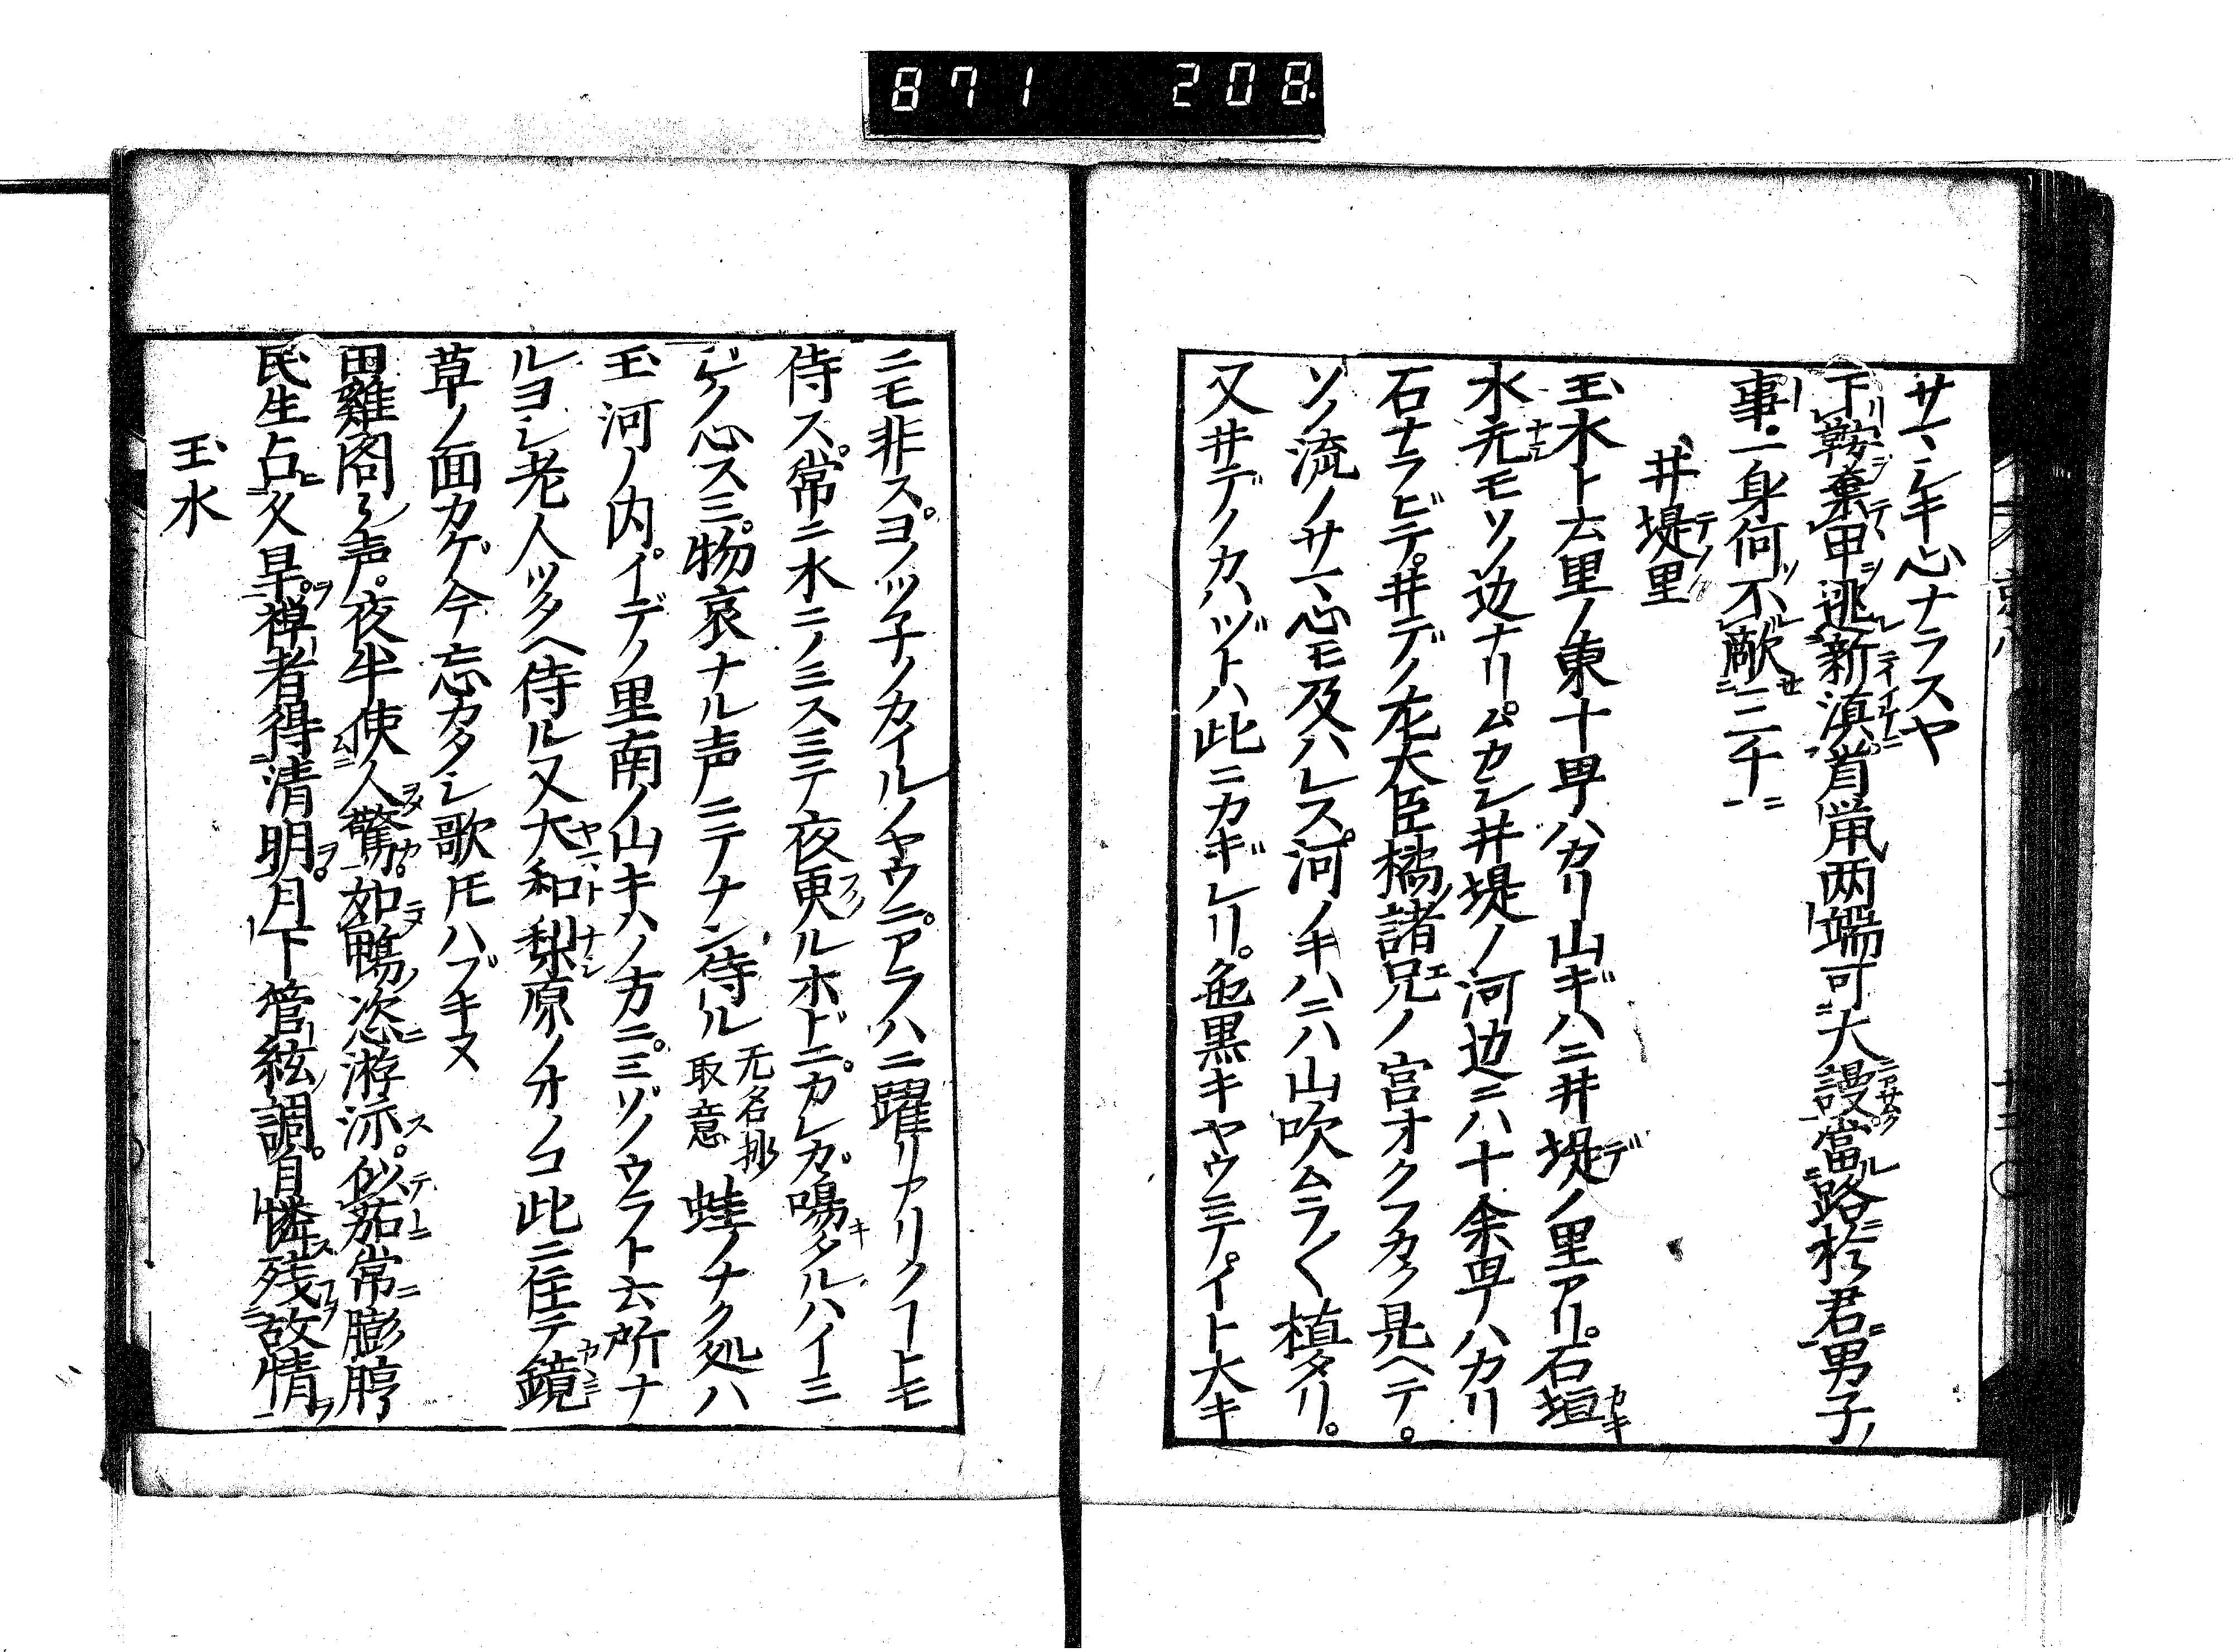 871 208
サマシキ心ナラスヤ
下鞍棄甲逃新滇首鼠両端可大謾當路於君男子
事一身何不敵三千
井堤里
玉水ト云里ノ東十甼ハカリ山ギハニ井堤ノ里アリ石垣
水无モソノ辺ナリ。ムカシ井堤ノ河辺ニハ十余甼ハカリ
石ナラビテ。井デノ左大臣橘諸兄ノ宮オクフカク見ヘテ。
ソノ流ノサマ心モ及ハレス。河ノキハニハ山吹ムラ〱植タリ。
又井デノカハヅトハ此ニカギレリ。色黒キヤウニテ。イト大キ
ニモ非ス。ヨノツ子ノカイルノヤウニ。アラハニ躍リアリクヿモ
侍ス。常ニ水ニノミスミテ夜更ルホドニ。カレカ。鳴タルハイミ
ジク心スミ。物哀ナル声ニテナン侍ル 无名抄取意 蛙ノナク処ハ
玉河ノ内。イデノ里南ノ山キハノ方ニ。ミゾノウラト云所ナ
ルヨシ老人ツタヘ侍ル又大和梨原ノオノコ此ニ住テ鏡
草ノ面カゲ今忘カタシ歌𪜈ハブキヌ
田雞閣〻声。夜半使人驚。如鴨恣游泳。似茄常膨脝
民生占文旱。禅者得清明。月下管絃調。自憐残故情
玉水